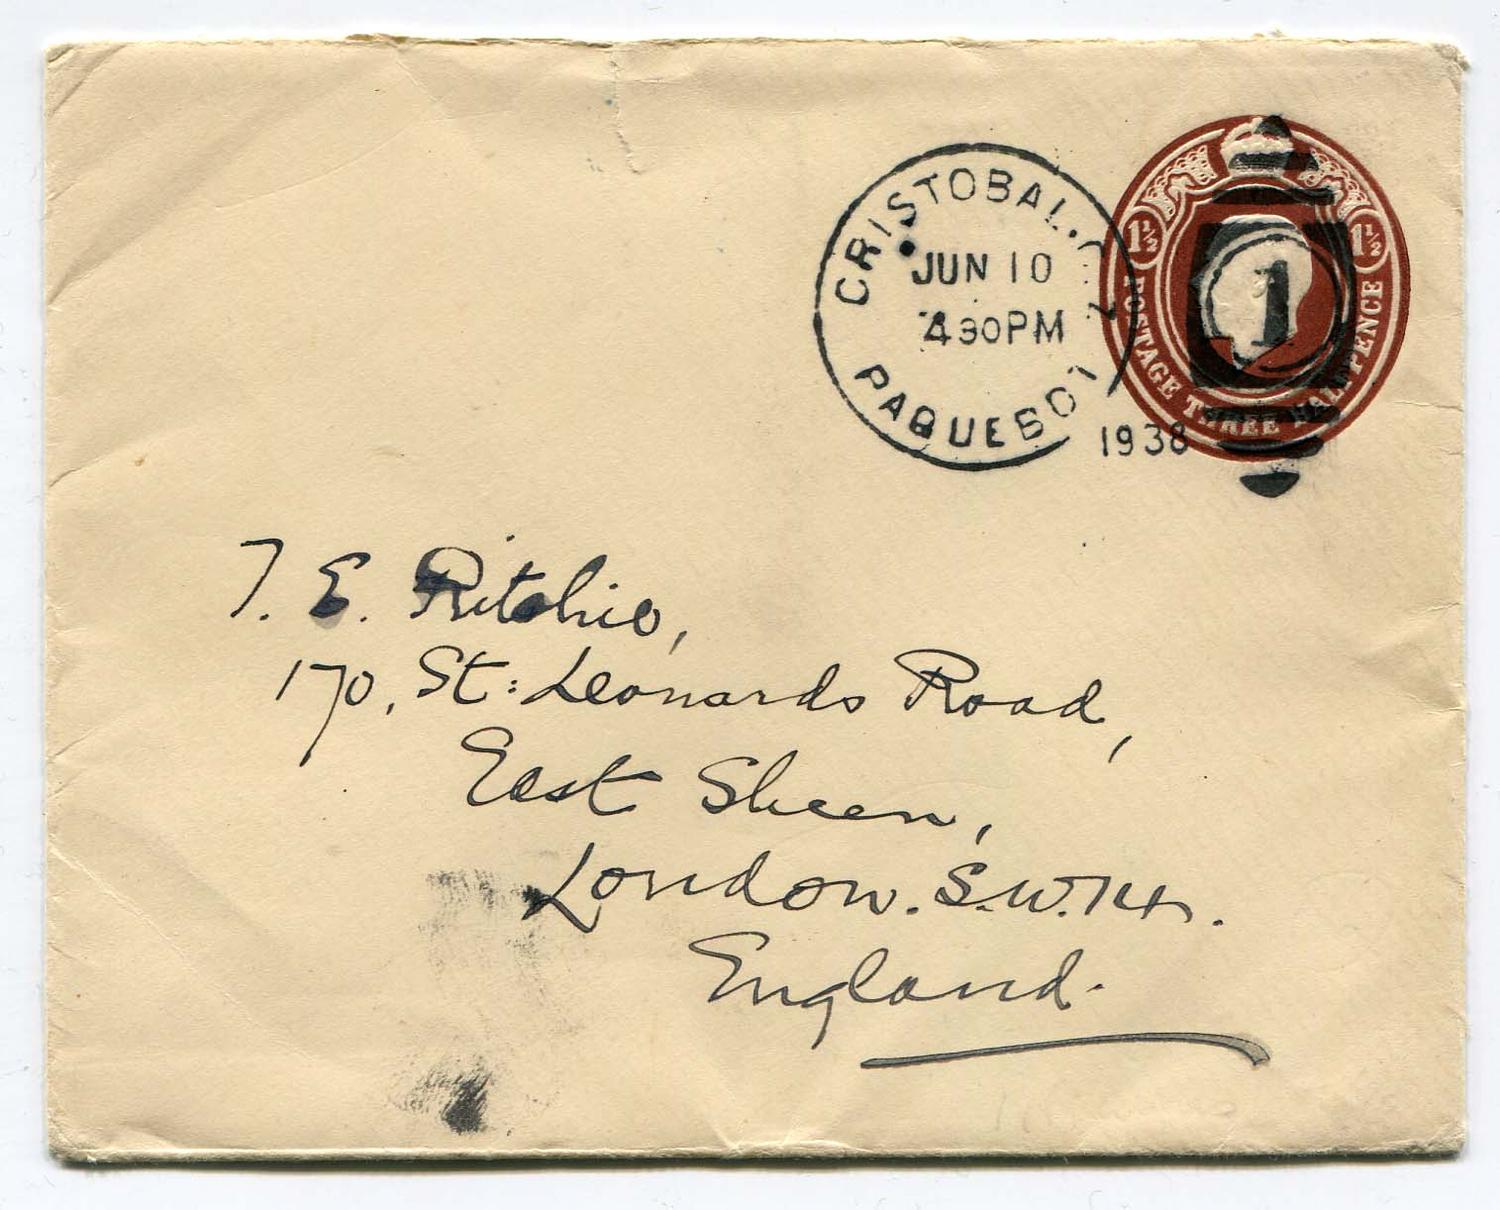 CRISTOBAL. C. Z.
JUN 10
4 30 PM
PAQUEBOT
1938
1
1½ 1½
POSTAGE THREE HALFPENCE
T. E. Ritchie,
170, St: Leonards Road,
East Sheen,
London. S.W.14.
England.